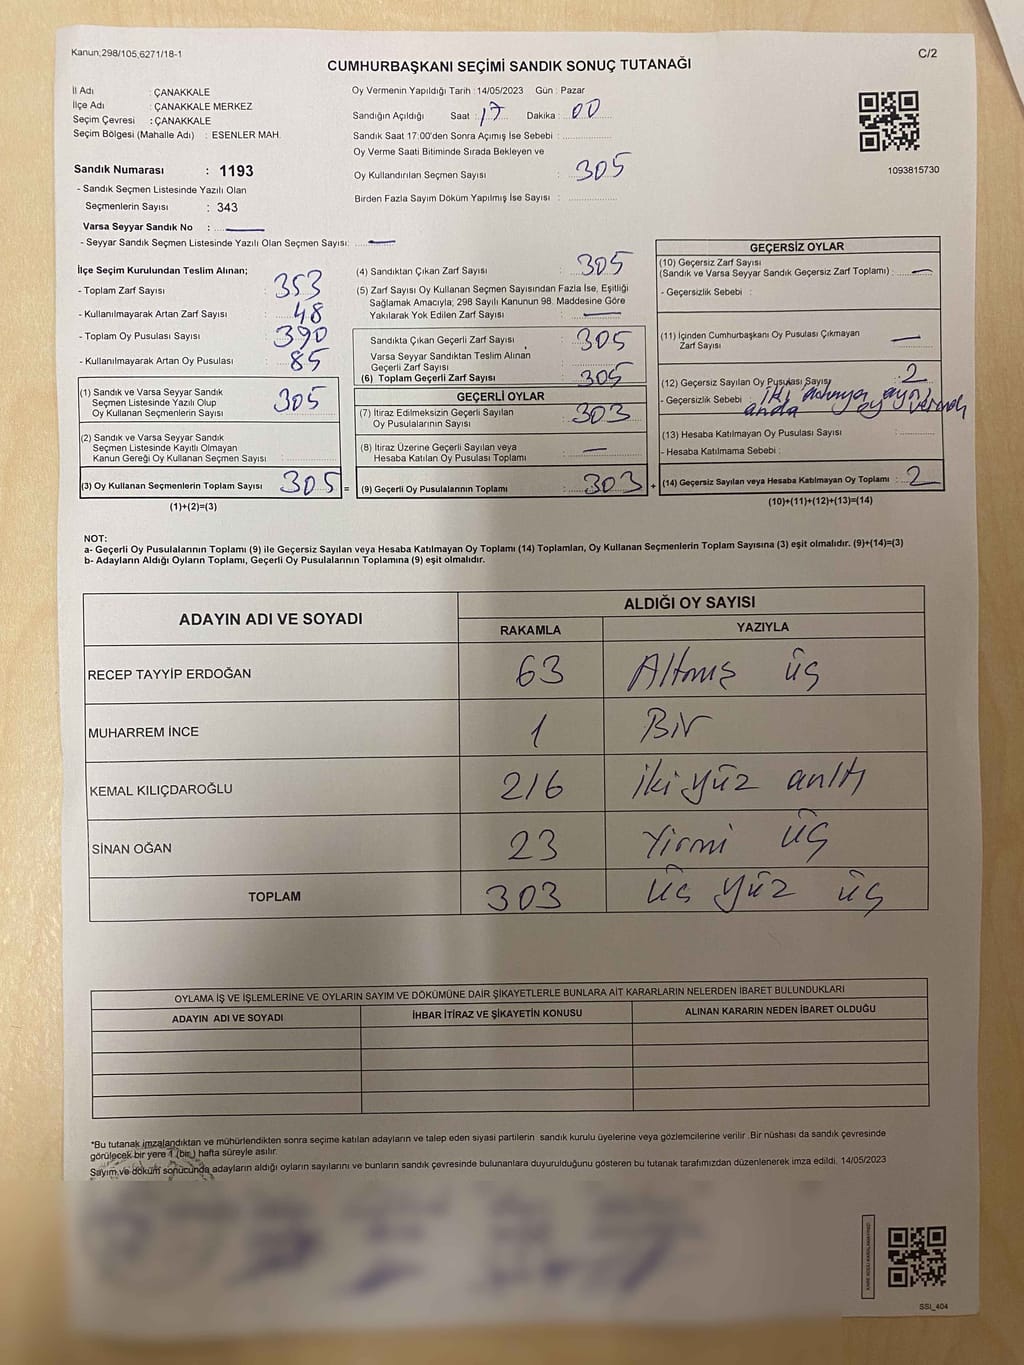 Kanun,298/105,6271/18-1
C/2
CUMHURBAŞKANI SEÇİMİ SANDIK SONUÇ TUTANAĞI
İl Adı : ÇANAKKALE
İlçe Adı : ÇANAKKALE MERKEZ
Seçim Çevresi : ÇANAKKALE
Seçim Bölgesi (Mahalle Adı) : ESENLER MAH.
Sandık Numarası : 1193
- Sandık Seçmen Listesinde Yazılı Olan
Seçmenlerin Sayısı : 343
Varsa Seyyar Sandık No :
- Seyyar Sandık Seçmen Listesinde Yazılı Olan Seçmen Sayısı:
Oy Vermenin Yapıldığı Tarih : 14/05/2023 Gün : Pazar
Sandığın Açıldığı Saat : 17 Dakika : 00
Sandık Saat 17:00'den Sonra Açımış İse Sebebi :
Oy Verme Saati Bitiminde Sırada Bekleyen ve
Oy Kullandırılan Seçmen Sayısı : 305
Birden Fazla Sayım Döküm Yapılmış İse Sayısı :
1093815730
İlçe Seçim Kurulundan Teslim Alınan;
- Toplam Zarf Sayısı : 353
- Kullanılmayarak Artan Zarf Sayısı : 48
- Toplam Oy Pusulası Sayısı : 390
- Kullanılmayarak Artan Oy Pusulası : 85
(1) Sandık ve Varsa Seyyar Sandık
Seçmen Listesinde Yazılı Olup
Oy Kullanan Seçmenlerin Sayısı : 305
(2) Sandık ve Varsa Seyyar Sandık
Seçmen Listesinde Kayıtlı Olmayan
Kanun Gereği Oy Kullanan Seçmen Sayısı :
(3) Oy Kullanan Seçmenlerin Toplam Sayısı : 305 =
(1)+(2)=(3)
(4) Sandıktan Çıkan Zarf Sayısı : 305
(5) Zarf Sayısı Oy Kullanan Seçmen Sayısından Fazla İse, Eşitliği
Sağlamak Amacıyla; 298 Sayılı Kanunun 98. Maddesine Göre
Yakılarak Yok Edilen Zarf Sayısı :
Sandıkta Çıkan Geçerli Zarf Sayısı : 305
Varsa Seyyar Sandıktan Teslim Alınan
Geçerli Zarf Sayısı :
(6) Toplam Geçerli Zarf Sayısı : 305
GEÇERLİ OYLAR
(7) İtiraz Edilmeksizin Geçerli Sayılan
Oy Pusulalarının Sayısı : 303
(8) İtiraz Üzerine Geçerli Sayılan veya
Hesaba Katılan Oy Pusulası Toplamı :
(9) Geçerli Oy Pusulalarının Toplamı : 303 +
GEÇERSİZ OYLAR
(10) Geçersiz Zarf Sayısı
(Sandık ve Varsa Seyyar Sandık Geçersiz Zarf Toplamı) :
- Geçersizlik Sebebi :
(11) İçinden Cumhurbaşkanı Oy Pusulası Çıkmayan
Zarf Sayısı :
(12) Geçersiz Sayılan Oy Pusulası Sayısı : 2
- Geçersizlik Sebebi : iki adaya aynı
anda oy vermek
(13) Hesaba Katılmayan Oy Pusulası Sayısı :
- Hesaba Katılmama Sebebi :
(14) Geçersiz Sayılan veya Hesaba Katılmayan Oy Toplamı : 2
(10)+(11)+(12)+(13)=(14)
NOT:
a- Geçerli Oy Pusulalarının Toplamı (9) ile Geçersiz Sayılan veya Hesaba Katılmayan Oy Toplamı (14) Toplamları, Oy Kullanan Seçmenlerin Toplam Sayısına (3) eşit olmalıdır. (9)+(14)=(3)
b- Adayların Aldığı Oyların Toplamı, Geçerli Oy Pusulalarının Toplamına (9) eşit olmalıdır.
ADAYIN ADI VE SOYADI ALDIĞI OY SAYISI
RAKAMLA YAZIYLA
RECEP TAYYİP ERDOĞAN 63 Altmış üç
MUHARREM İNCE 1 Bir
KEMAL KILIÇDAROĞLU 216 iki yüz onaltı
SİNAN OĞAN 23 Yirmi üç
TOPLAM 303 üç yüz üç
OYLAMA İŞ VE İŞLEMLERİNE VE OYLARIN SAYIM VE DÖKÜMÜNE DAİR ŞİKAYETLERLE BUNLARA AİT KARARLARIN NELERDEN İBARET BULUNDUKLARI
ADAYIN ADI VE SOYADI İHBAR İTİRAZ VE ŞİKAYETİN KONUSU ALINAN KARARIN NEDEN İBARET OLDUĞU
*Bu tutanak imzalandıktan ve mühürlendikten sonra seçime katılan adayların ve talep eden siyasi partilerin sandık kurulu üyelerine veya gözlemcilerine verilir. Bir nüshası da sandık çevresinde
görülecek bir yere 1 (bir) hafta süreyle asılır.
Sayım ve döküm sonucunda adayların aldığı oyların sayılarını ve bunların sandık çevresinde bulunanlara duyurulduğunu gösteren bu tutanak tarafımızdan düzenlenerek imza edildi. 14/05/2023
SSI_404